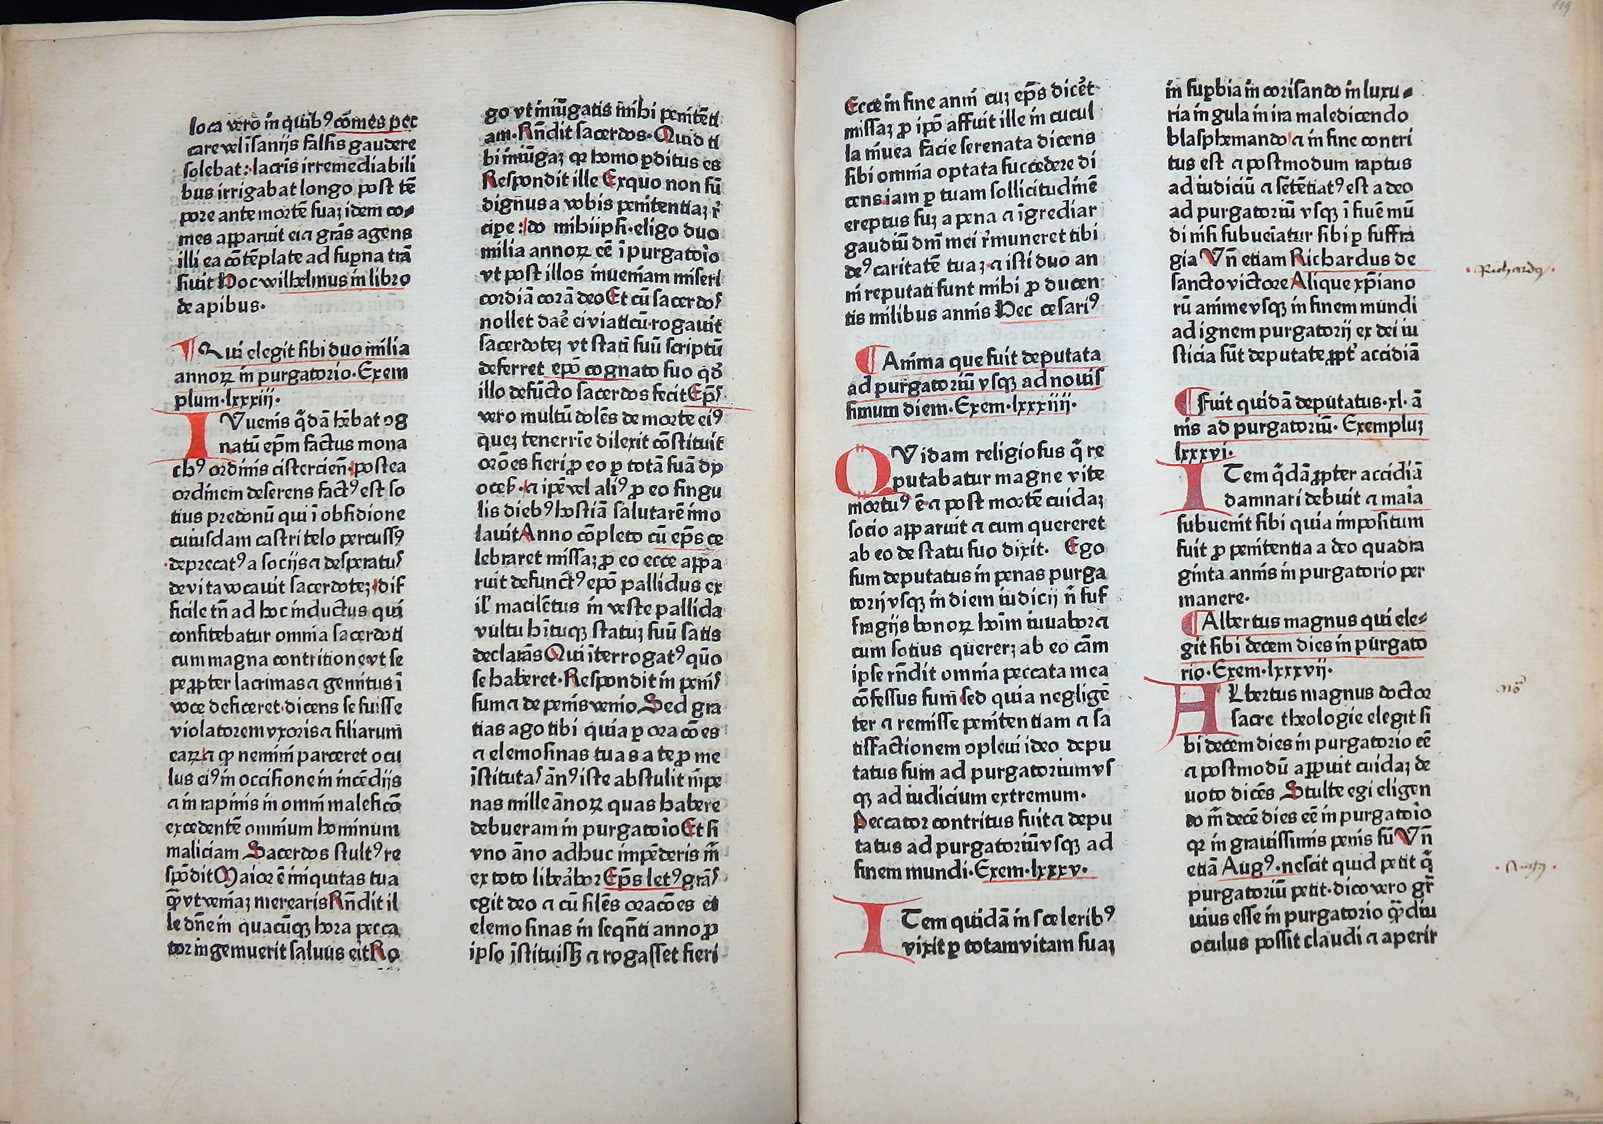 loca vero in quibꝰ cōmes pec
care vel isanijs falsis gaudere
solebat: lacris irremediabili
bus irrigabat longo post tē
pore ante mortē suaꝫ idem co⸗
mes apparuit ei ⁊ grās agens
illi ea cōtēplate ad supna trā
siuit Hoc wilhelmus in libro
de apibus·
¶ Qui elegit sibi duo milia
annoꝝ in purgatorio· Exem
plum·lxxxiij·
IUvenis q̄dā hēbat ↄg
natū ep̄m factus mona
chꝰ ordinis cisterciēn· postea
ordinem deserens factꝰ est so
tius predonū qui ī obsidione
cuiusdam castri telo percussꝰ
deprecatꝰ a socijs ⁊ desperatus
de vita vocauit sacerdoteꝫ dif
ficile tn̄ ad hoc inductus qui
confitebatur omnia sacerdoti
cum magna contritione vt se
pe ꝓpter lacrimas ⁊ gemitus ī
voce deficeret· dicens se fuisse
violatorem vxoris ⁊ filiarum
eaꝝ ⁊ ꝙ nemini parceret ocu
lus eiꝰ in occisione in incēdijs
⁊ in rapinis in omni maleficō
excedentē omnium hominum
maliciam Sacerdos stultꝰ re
spōdit Maior ē iniquitas tua
ꝙ̄ vt veniaꝫ merearis Rn̄dit il
le dn̄e in quacūqꝫ hora pecca
tor ingemuerit saluus eit Ro
go vt iniūgatis mihi penitēti
am· Rn̄dit sacerdos· Quid ti
bi iniūgaꝫ qꝛ homo ꝑditus es
Respondit ille Exquo non sū
dignus a vobis penitentiaꝫ r̄
cipe: Ido mihiipsi· eligo duo
milia annoꝝ eē ī purgatoīo
vt post illos inueniam miseri
cordiā corā deo Et cū sacerdos
nollet daē ei viaticū· rogauit
sacerdoteꝫ vt statū suū scriptū
deferret ep̄o cognato suo qd̄
illo defūcto sacerdos fecit Ep̄s
vero multū dolēs de morte eiꝰ
queꝫ tenerrīe dilexit cōstituit
orōes fieri ꝓ eo ꝑ totā suā dy
oceß· ⁊ ip̄e vel aliꝰ ꝓ eo singu
lis diebꝰ hostiā salutarē imo
lauit Anno cōpleto cū ep̄s ce
lebraret missaꝫ ꝓ eo ecce appa
ruit defunctꝰ ep̄o pallidus ex
il' macilētus in veste pallida
vultu hītuqꝫ statuꝫ suū satis
declarās Qui īterrogatꝰ quō
se haberet· Respondit in penis
sum ⁊ de penis venio Sed gra
tias ago tibi quia ꝑ oracōes
⁊ elemosinas tuas a te ꝓ me
īstitutas ānꝰ iste abstulit in pe
nas mille ānoꝝ quas habere
debueram in purgatoīo Et si
vno āno adhuc impēderis m̄
ex toto libeābor Ep̄s letꝰ grās
egit deo ⁊ cū silēs oracōes et
elemosinas in seqn̄ti anno ꝓ
ipso īstituissꝫ ⁊ rogasset fieri
Ecce in fine anni cuꝫ ep̄s dicēt
missaꝫ ꝓ ip̄o affuit ille in cucul
la niuea facie serenata dicens
sibi omnia optata succedere di
cens iam ꝑ tuam sollicitudinē
ereptus suꝫ a pena ⁊ īgrediar
gaudiū dnī mei r̄muneret tibi
deꝰ caritatē tuaꝫ ⁊ isti duo an
ni reputati sunt mihi ꝓ ducen
tis milibus annis Hec cesariꝰ
¶ Anima que fuit deputata
ad purgatoriū vsqꝫ ad nouis
simum diem· Exem·lxxxiiij·
QUidam religiosus q̄ re
putabatur magne vite
mortuꝰ ē· ⁊ post mortē cuidaꝫ
socio apparuit ⁊ cum quereret
ab eo de statu suo dixit· Ego
sum deputatus in penas purga
torij vsqꝫ in diem iudicij n̄ suf
fragijs bonoꝝ hoīm iuuabor ⁊
cum sotius quereꝫ ab eo cām
ipse rn̄dit omnia peccata mea
cōfessus sum sed quia negligē
ter ⁊ remisse penitentiam ⁊ sa
tisfactionem opleui ideo depu
tatus sum ad purgatorium vs
qꝫ ad iudicium extremum·
Peccator contritus fuit ⁊ depu
tatus ad purgatoriū vsqꝫ ad
finem mundi· Exem·lxxxv·
ITem quidā in sceleribꝰ
vixit ꝑ totam vitam suaꝫ
in supbia in corisando in luxu⸗
ria in gula in ira maledicendo
blasphemando ⁊ in fine contri
tus est ⁊ postmodum raptus
ad iudiciū ⁊ sētētiatꝰ est a deo
ad purgatoriū vsqꝫ ī finē mū
di nisi subueiatur sibi ꝑ suffra
gia Vn̄ etiam Richardus de
sancto victore Alique xp̄iano
rū anime vsqꝫ in finem mundi
ad ignem purgatorij ex dei iu
sticia sūt deputate ꝓpt' accidiā
¶ Fuit quidā deputatus·xl· ā
nis ad purgatoriū· Exempluꝫ
lxxxvi·
ITem q̄dā ꝓpter accidiā
damnari debuit ⁊ maīa
subuenit sibi quia impositum
fuit ꝓ penitentia a deo quadra
ginta annis in purgatorio per
manere·
¶ Albertus magnus qui ele⸗
git sibi decem dies in purgato
rio· Exem·lxxxvij·
ALbertus magnus doctor
sacre theologie elegit si
bi decem dies in purgatorio eē
⁊ postmodū appuit cuidaꝫ de
uoto dicēs Stulte egi eligen
do m̄ decē dies eē in purgatoīo
qꝛ in grauissimis penis sū Vn̄
etiā Augꝰ· nescit quid petit q̄
purgatoriū petit· dico vero gr̄
uius esse in purgatorio ꝙ̄diu
oculus possit claudi ⁊ aperir
Richardꝰ
no
119